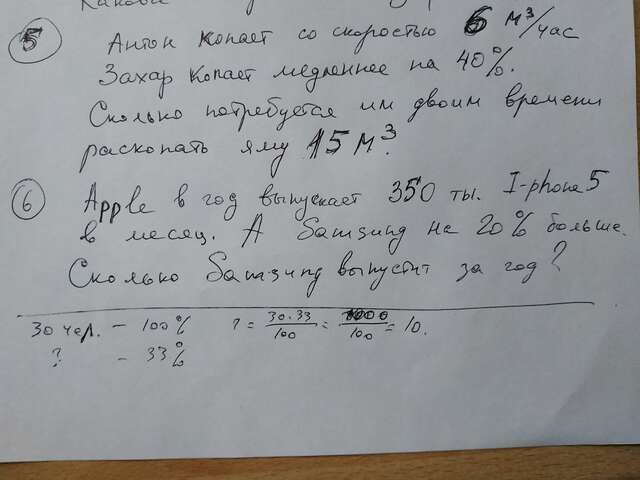 5
Антон копает со скоростью 6 м³/час
Захар копает медленнее на 40%.
Сколько потребуется им двоим времени
раскопать яму 15 м³.
6
Apple в год выпускает 350 ты. I-phone5
в месяц. А Samsung на 20% больше.
Сколько Samsung выпустит за год?
30 чел. – 100%
? – 33%
? = 30·33/100 = 1000/100 = 10.